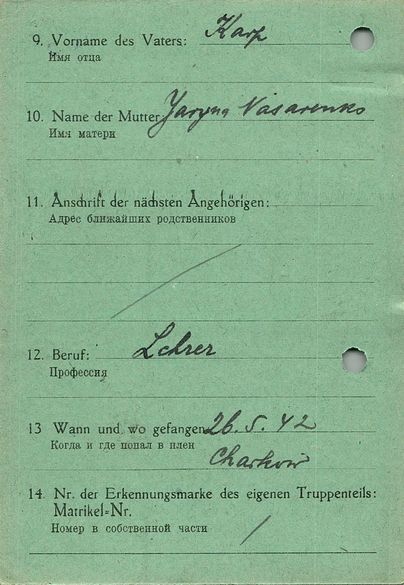 9. Vorname des Vaters: Karp
Имя отца
10. Name der Mutter Jaryna Nasarenko
Имя матери
11. Anschrift der nächsten Angehörigen:
Адрес ближайших родственников
12. Beruf: Lehrer
Профессия
13 Wann und wo gefangen 26. 5. 42
Когда и где попал в плен
Charkow
14. Nr. der Erkennungsmarke des eigenen Truppenteils:
Matrikel-Nr.
Номер в собственной части